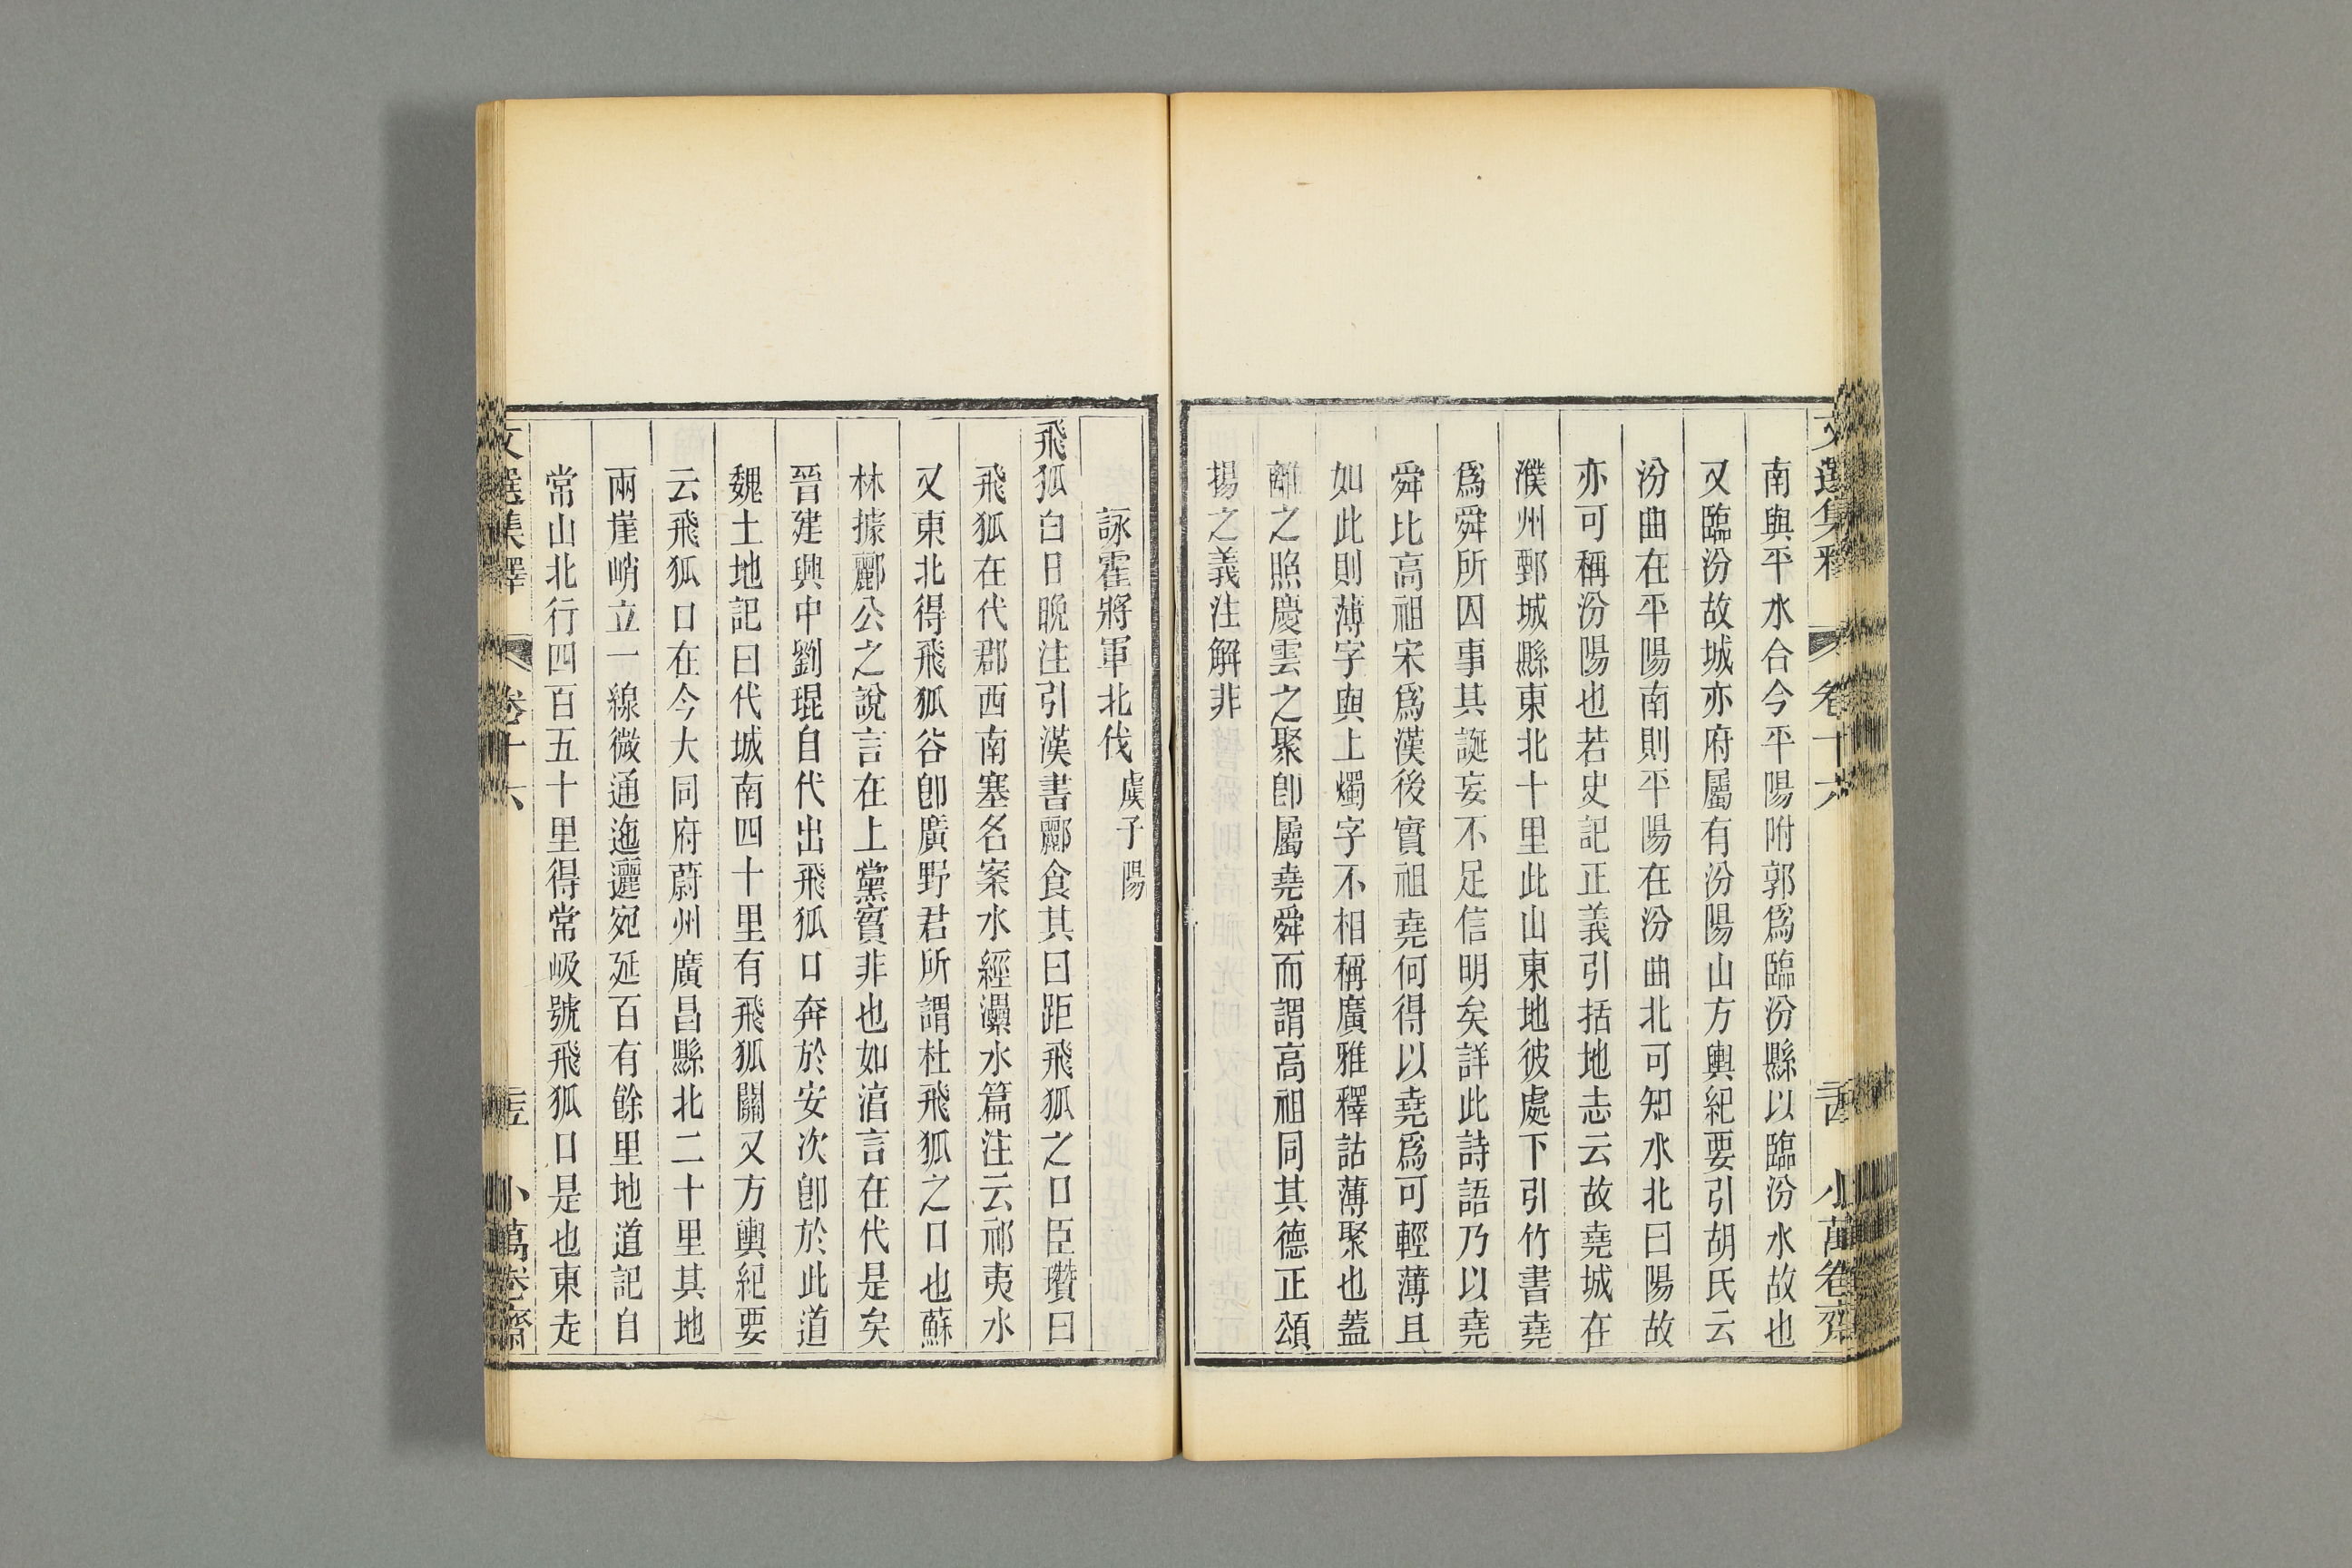 文選集釋 卷十六 小萬卷齋
南與平水合今平陽附郭爲臨汾縣以臨汾水故也
又臨汾故城亦府屬有汾陽山方輿紀要引胡氏云
汾曲在平陽南則平陽在汾曲北可知水北曰陽故
亦可稱汾陽也若史記正義引括地志云故堯城在
濮州鄄城縣東北十里此山東地彼處下引竹書堯
爲舜所囚事其誕妄不足信明矣詳此詩語乃以堯
舜比高祖宋爲漢後實祖堯何得以堯爲可輕薄且
如此則薄字與上燭字不相稱廣雅釋詁薄聚也蓋
離之照慶雲之聚卽屬堯舜而謂高祖同其德正頌
揚之義注解非
詠霍將軍北伐 虞子陽
飛狐白日晚注引漢書酈食其曰距飛狐之口臣瓚曰
飛狐在代郡西南塞名案水經灅水篇注云祁夷水
又東北得飛狐谷卽廣野君所謂杜飛狐之口也蘇
林據酈公之說言在上黨實非也如淳言在代是矣
晉建興中劉琨自代出飛狐口奔於安次卽於此道
魏土地記曰代城南四十里有飛狐關又方輿紀要
云飛狐口在今大同府蔚州廣昌縣北二十里其地
兩崖峭立一線微通迤邐宛延百有餘里地道記自
常山北行四百五十里得常岋號飛狐口是也東走
文選集釋 卷十六 小萬卷齋